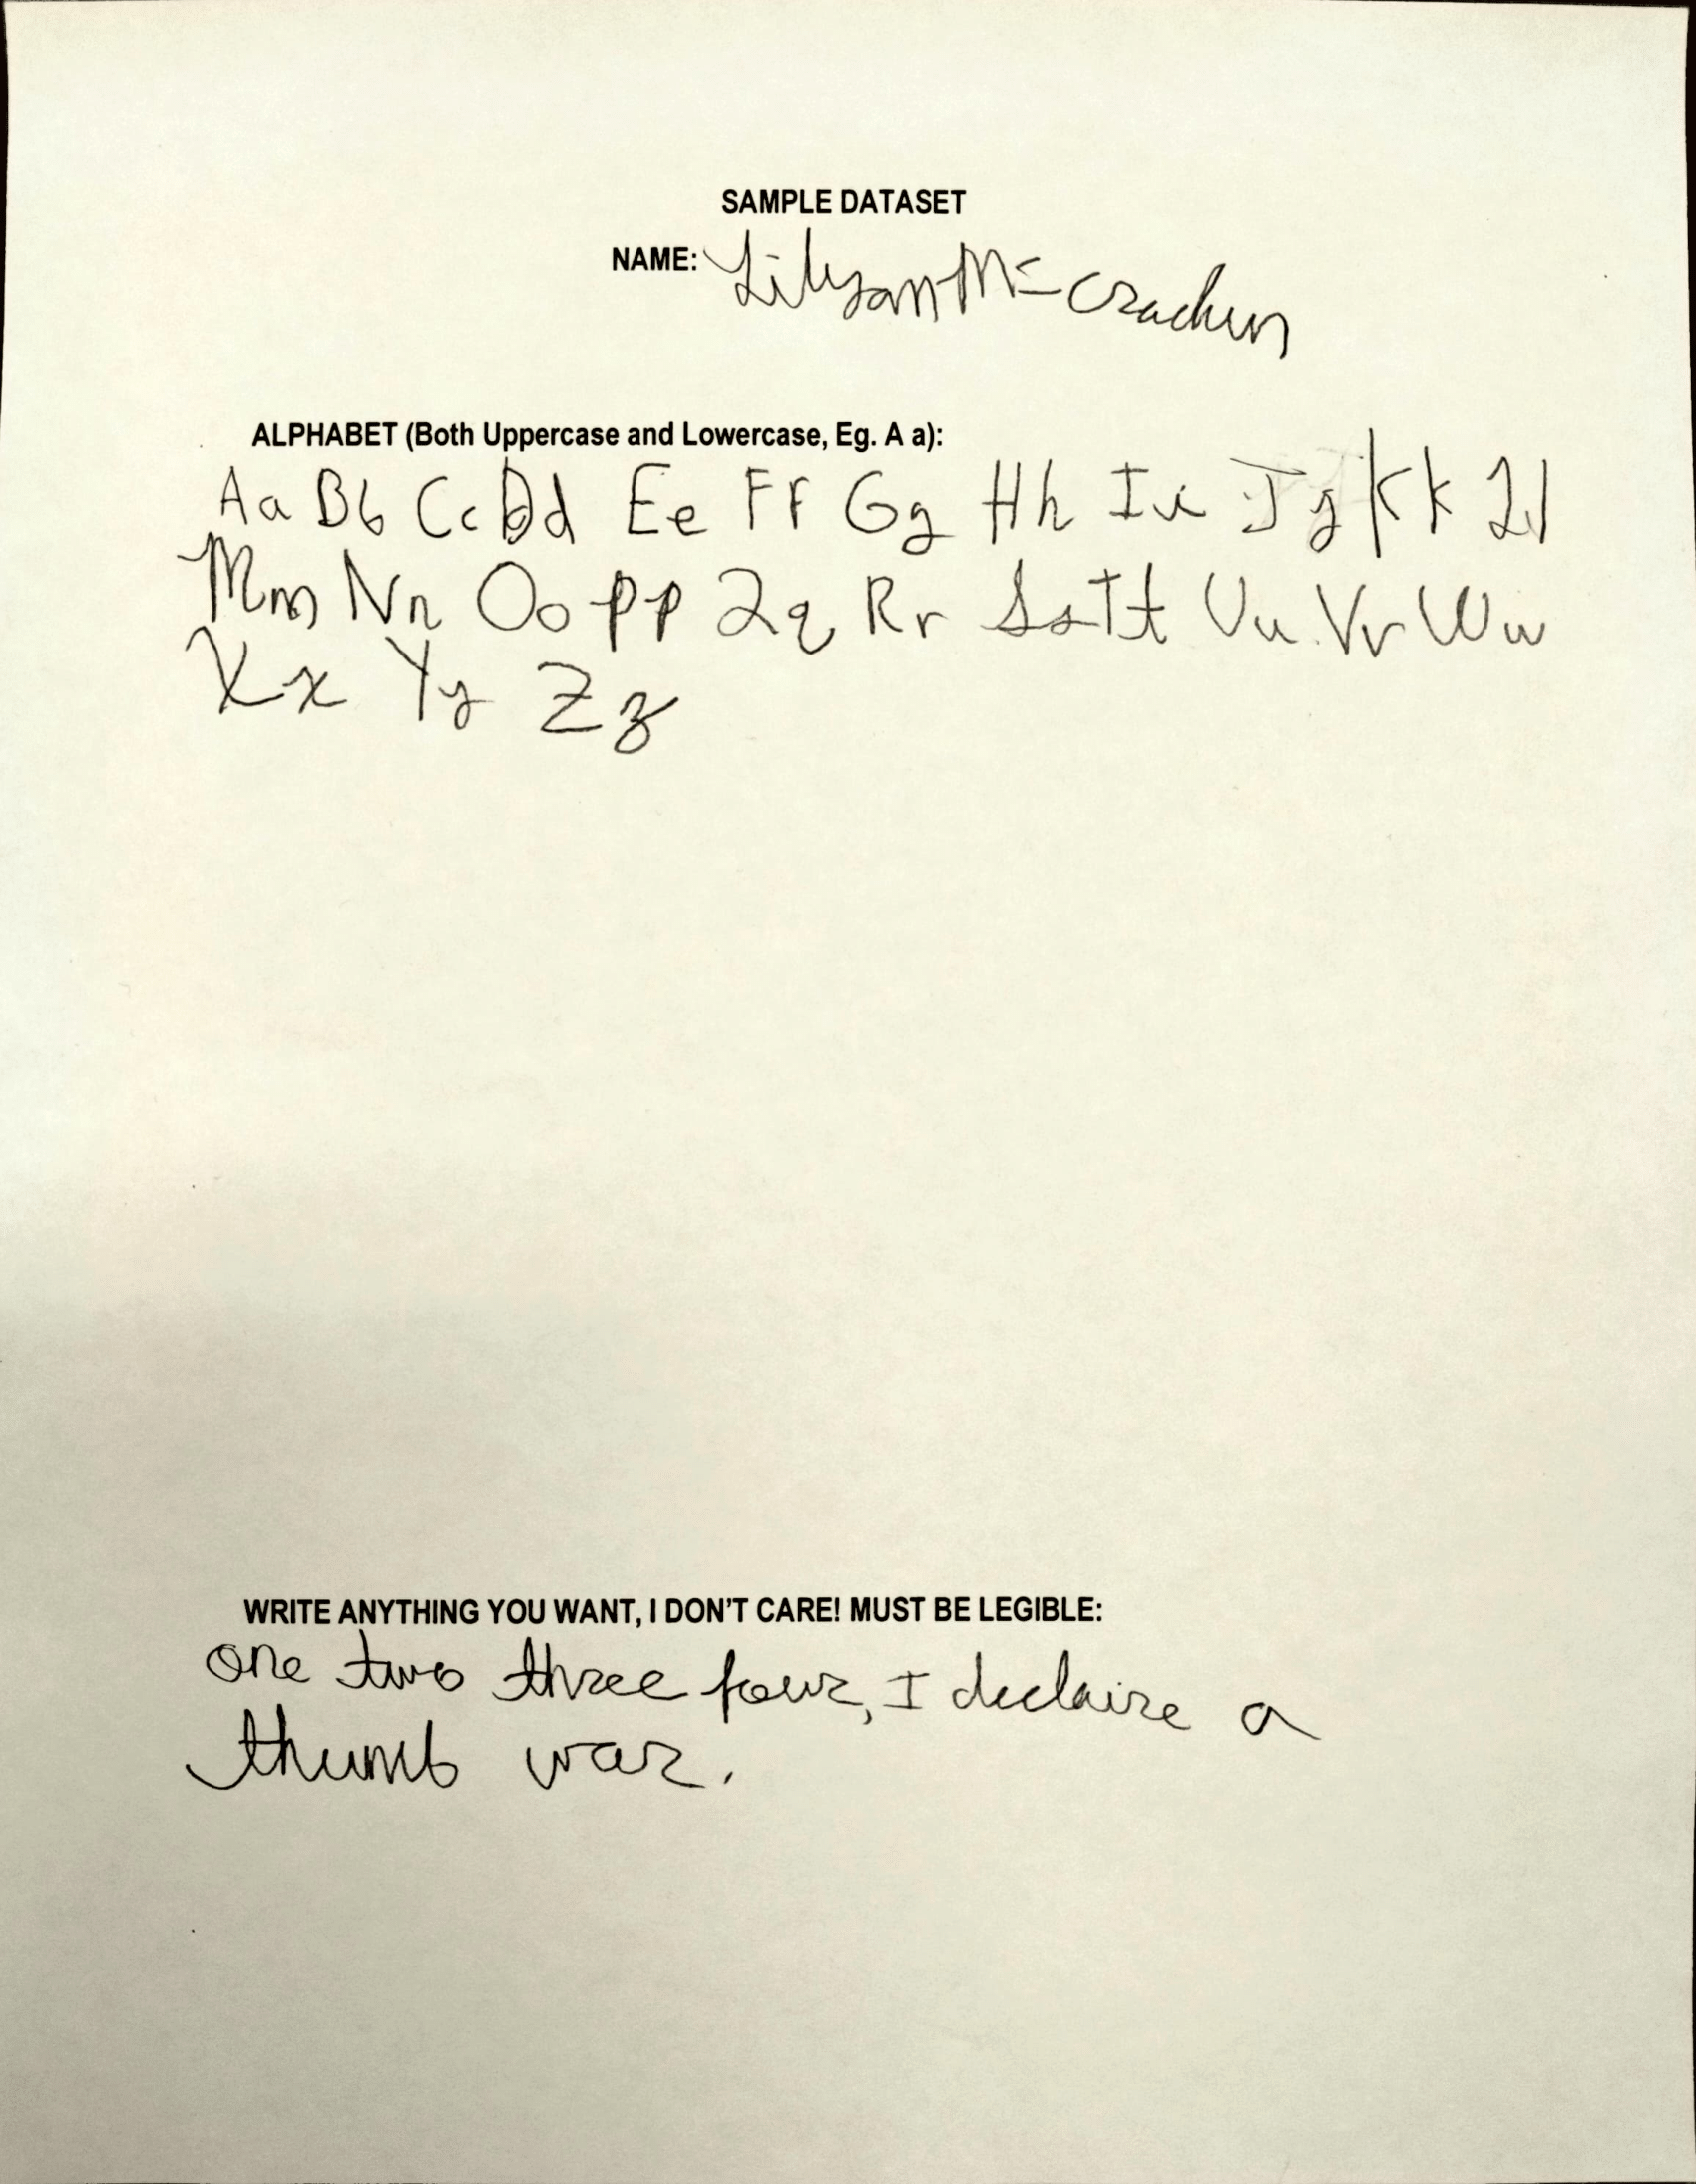 SAMPLE DATASET
NAME: Lilyan McCracken
ALPHABET (Both Uppercase and Lowercase, Eg. A a):
Aa Bb Cc Dd Ee Ff Gg Hh Ii Jj Kk Ll
Mm Nn Oo Pp Qq Rr Ss Tt Uu Vv Ww
Xx Yy Zz
WRITE ANYTHING YOU WANT, I DON'T CARE! MUST BE LEGIBLE:
one two three four, I declaire a
thumb war.